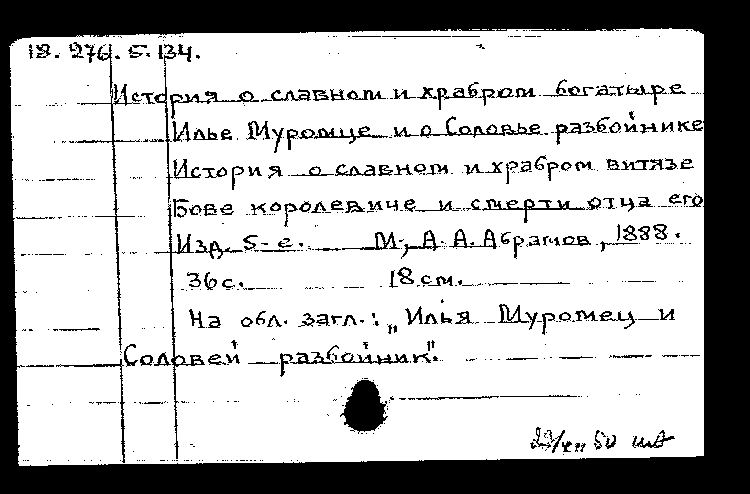 18. 276. 5. 134.
История о славном и храбром богатыре
Илье Муромце и о Соловье разбойнике
История о славном и храбром витязе
Бове королевиче и смерти отца его
Изд. 5-е. М., А. А. Абрамов, 1888.
36 с. 18 см.
На обл. загл.: „Илья Муромец и
Соловей разбойник".
50